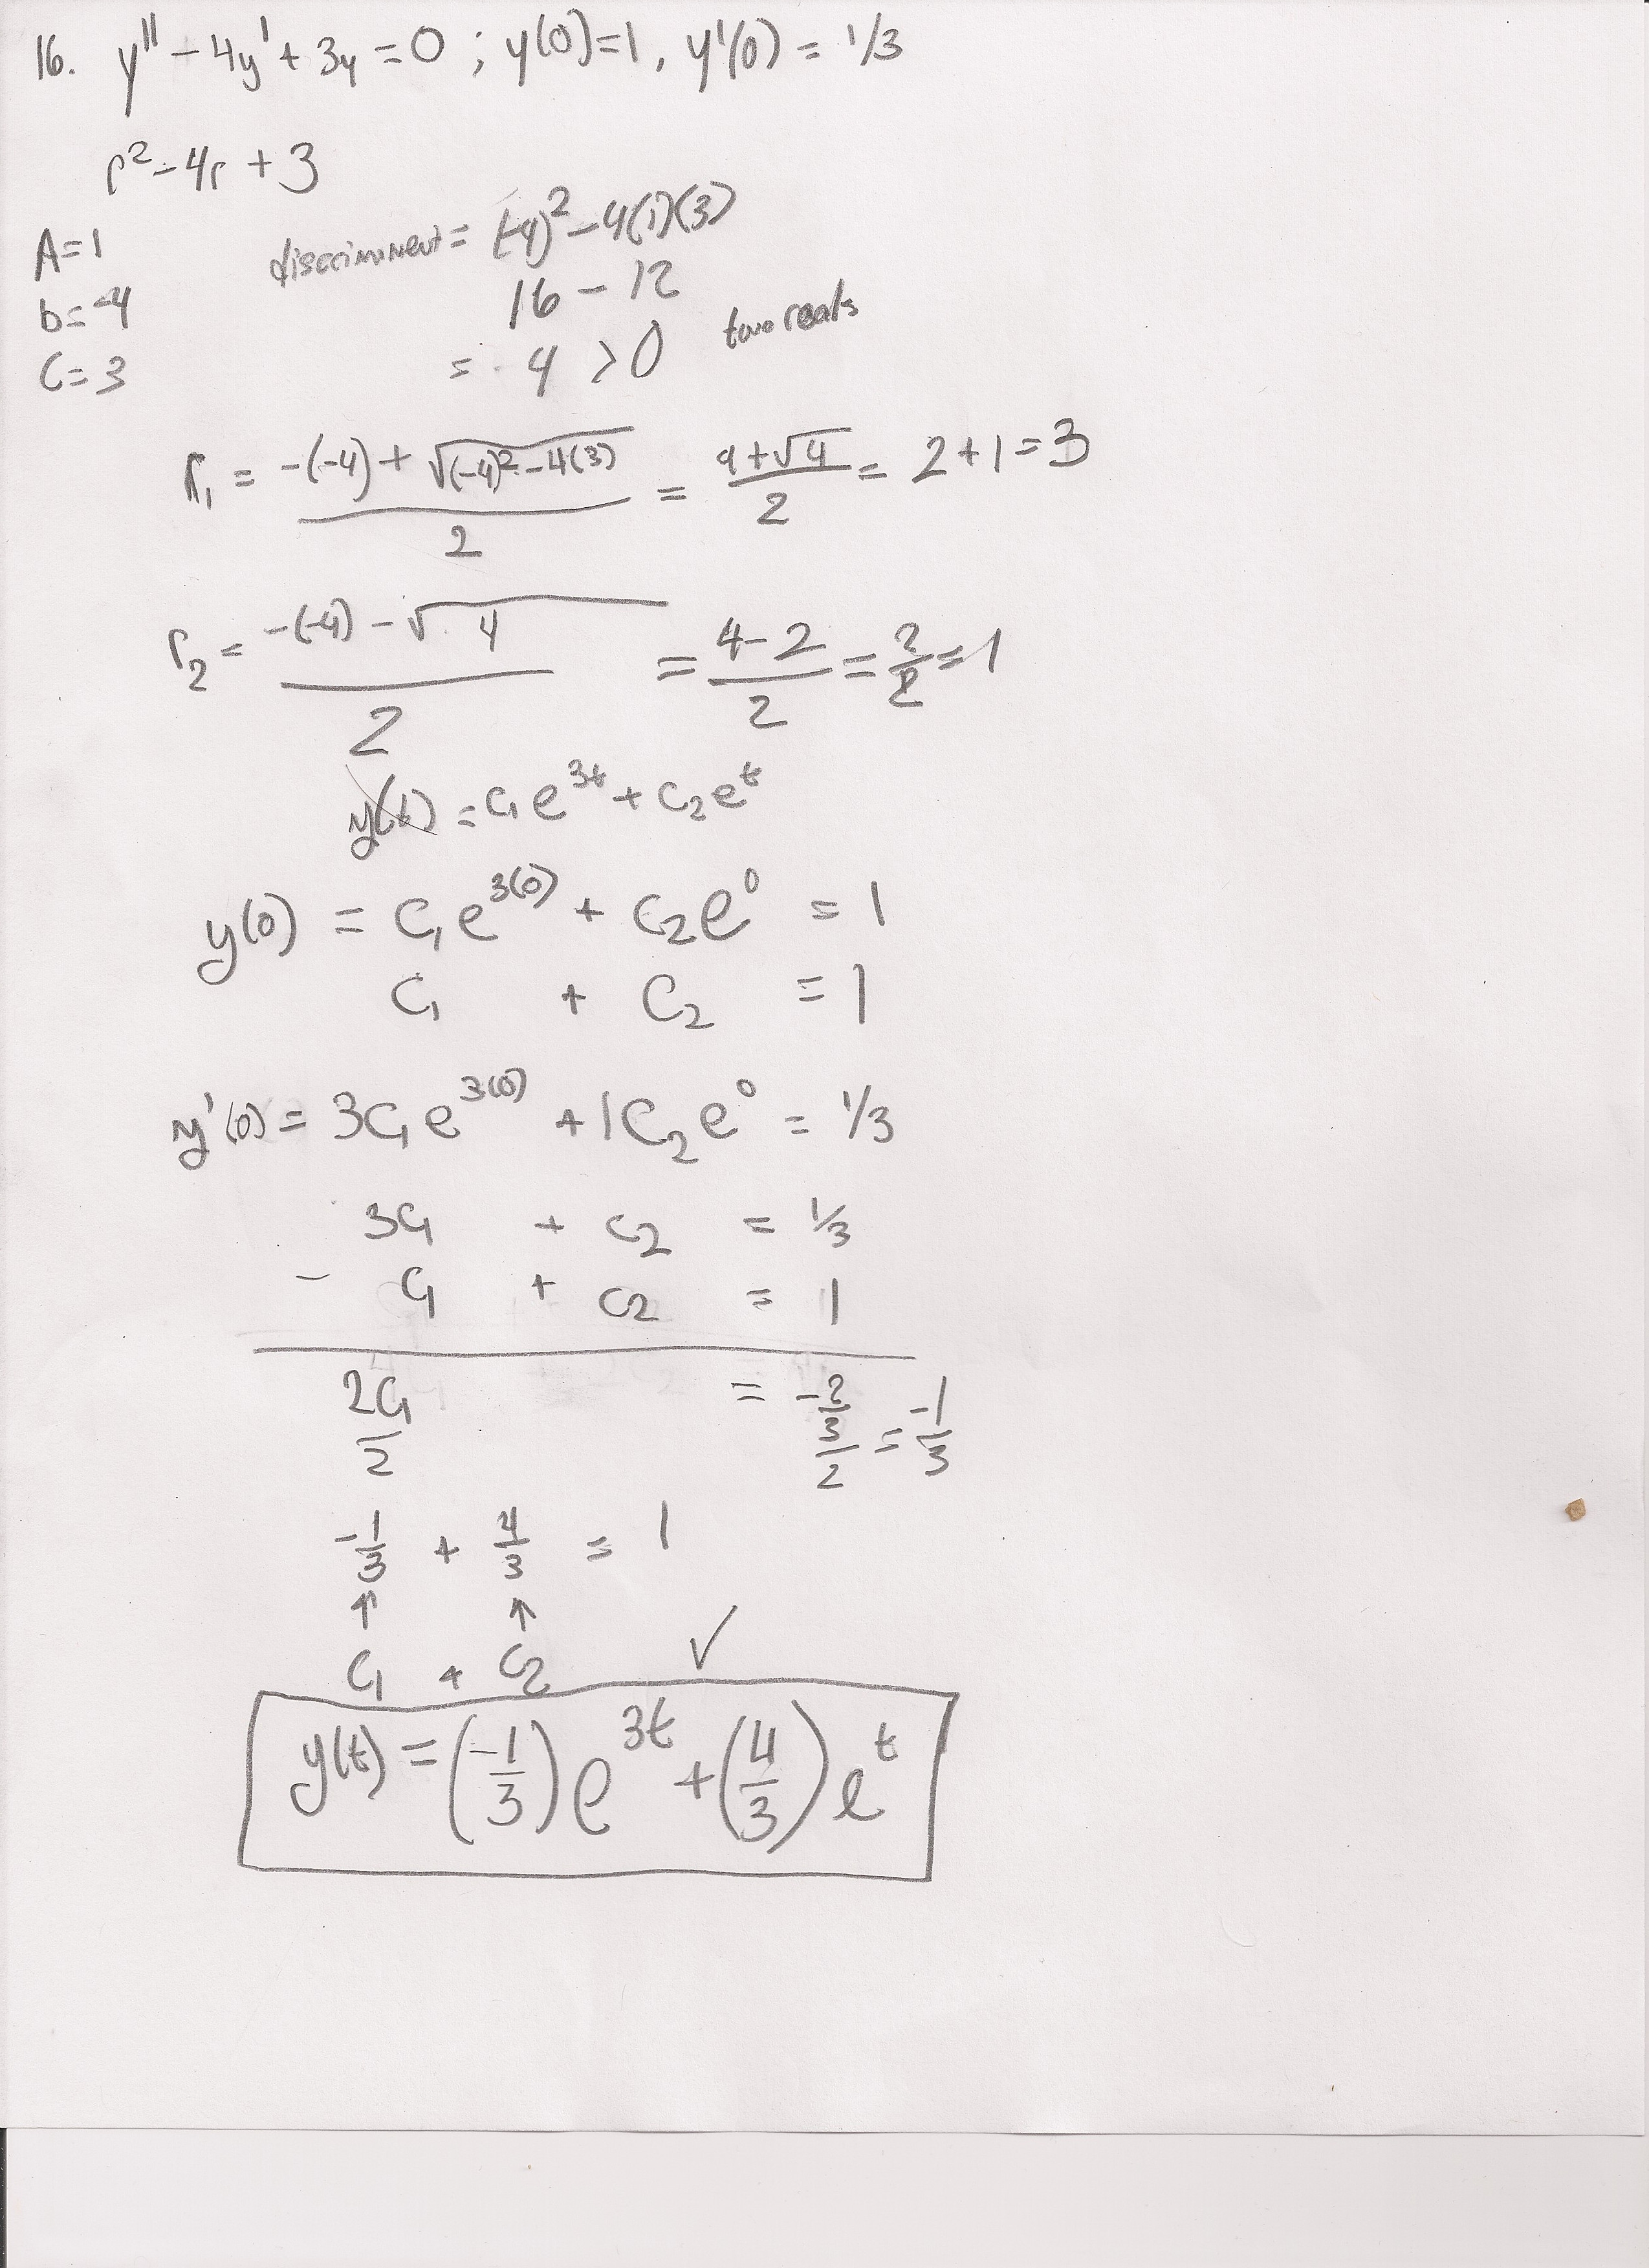 16. y'' - 4y' + 3y = 0 ; y(0)=1, y'(0) = 1/3
r² - 4r + 3
A=1
b=-4
C=3
discriminent = (-4)² - 4(1)(3)
16 - 12
= 4 > 0 two reals
r₁ = (-(-4) + √((-4)² - 4(3)))/2 = (4+√4)/2 = 2+1=3
r₂ = (-(-4) - √4)/2 = (4-2)/2 = 2/2 = 1
y(t) = c₁e^(3t) + c₂e^t
y(0) = c₁e^(3(0)) + c₂e^0 = 1
c₁ + c₂ = 1
y'(0) = 3c₁e^(3(0)) + 1c₂e^0 = 1/3
3c₁ + c₂ = 1/3
- c₁ + c₂ = 1
2c₁/2 = (-2/3)/2 = -1/3
-1/3 + 4/3 = 1
↑ ↑
c₁ + c₂ ✓
y(t) = (-1/3)e^(3t) + (4/3)e^t